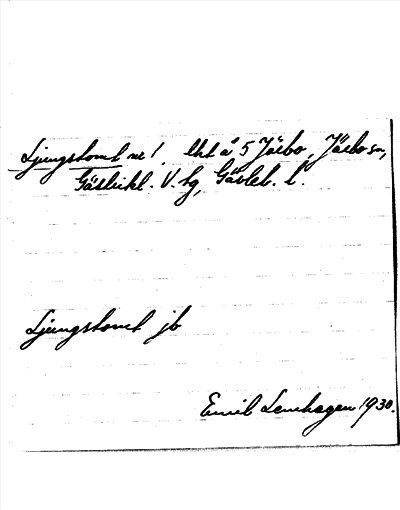 Ljungstomt nr 1, lht å 5 Järbo, Järbo sn,
Gästrikl. V. tg, Gävleb. l.
Ljungstomt jb
Emil Lenhagen 1930.